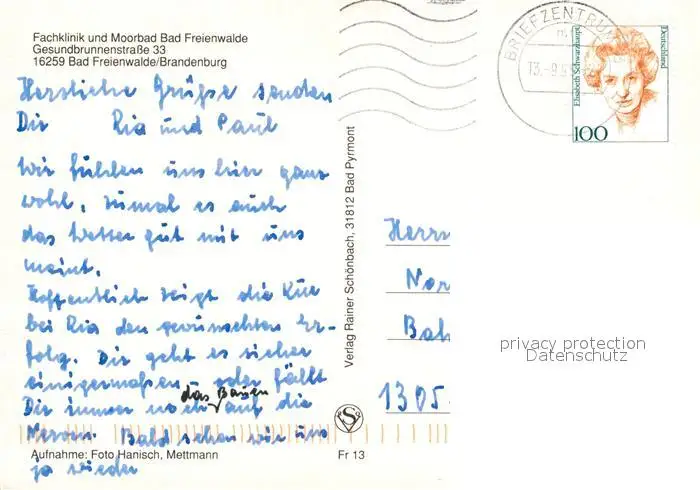 Fachklinik und Moorbad Bad Freienwalde
Gesundbrunnenstraße 33
16259 Bad Freienwalde/Brandenburg
Herzliche Grüße senden
Dir Ria und Paul
Wir fühlen uns hier ganz
wohl, zumal es auch
das Wetter gut mit uns
meint.
Hoffentlich zeigt die Kur
bei Ria den gewünschten Er-
folg. Dir geht es sicher
einigermaßen oder fällt
das Bauen
Dir immer noch auf die
Nerven. Bald sehen wir uns
ja wieder
Aufnahme: Foto Hanisch, Mettmann
Fr 13
Verlag Rainer Schönbach, 31812 Bad Pyrmont
BRIEFZENTRUM
13.-9.9
Elisabeth Schwarzhaupt
Deutschland
100
Herrn
Nor
Bah
1305
privacy protection
Datenschutz